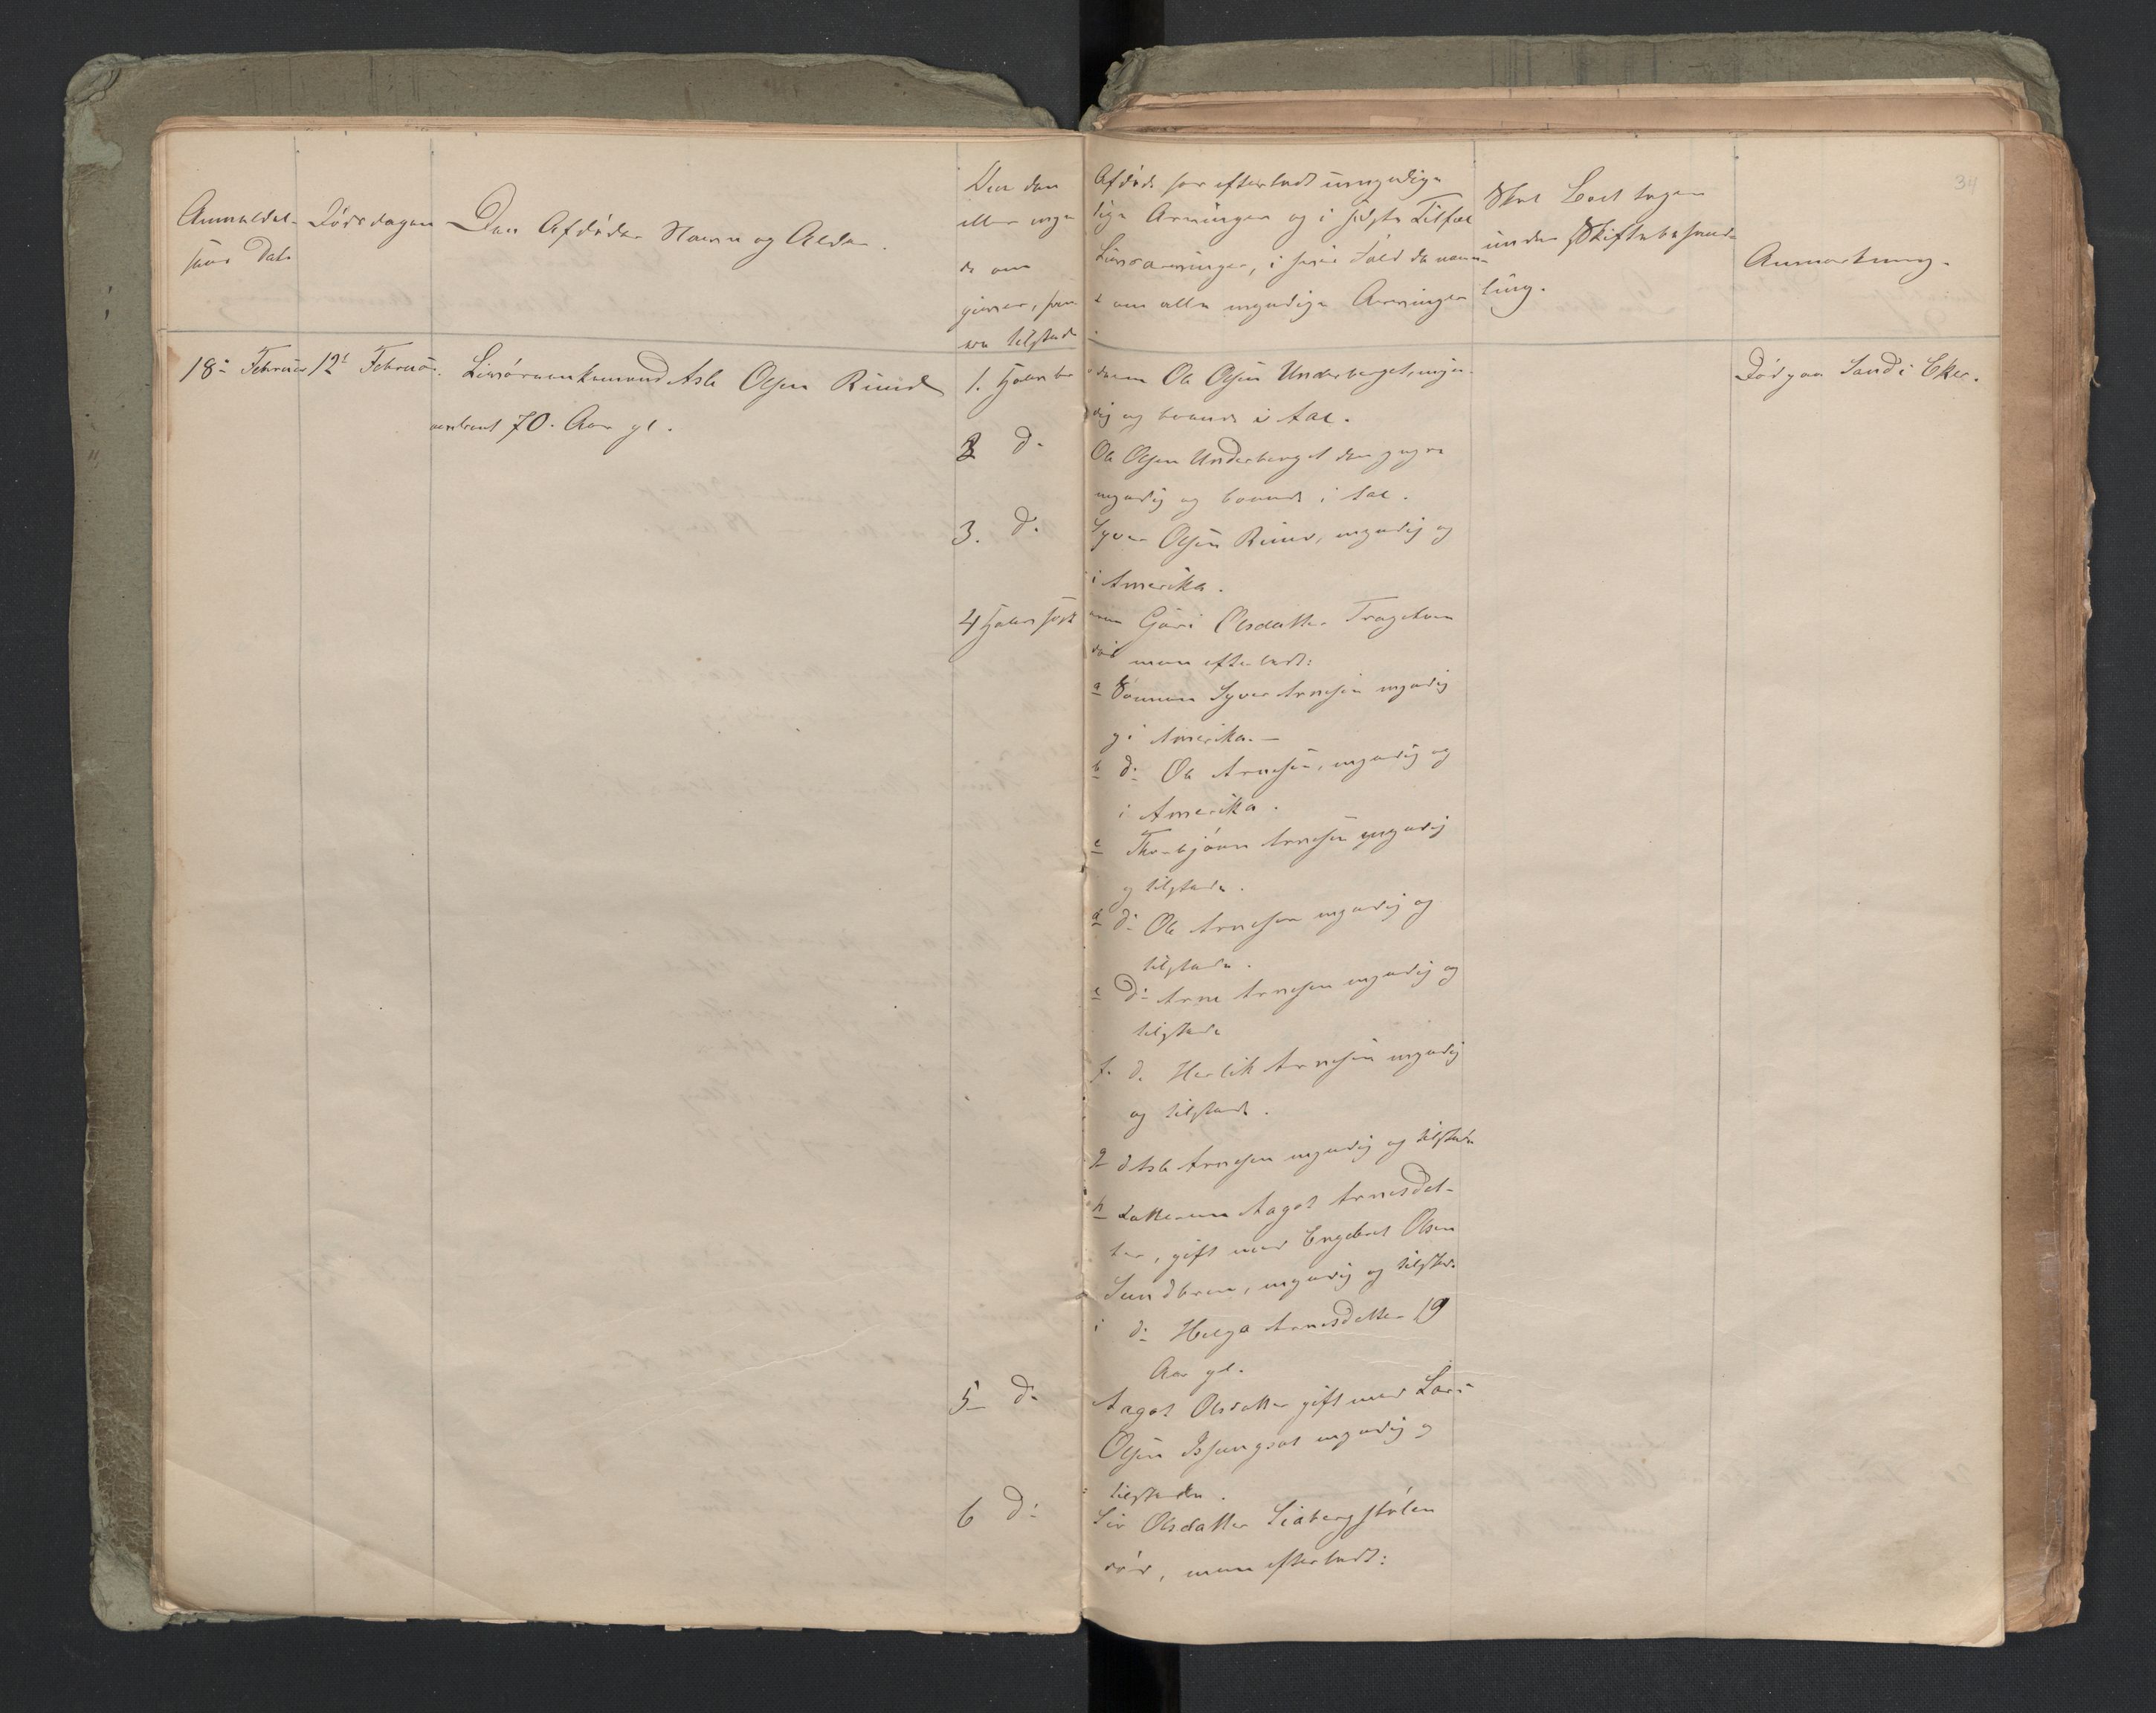 34
Anmeldel-
sens Dato
Dødsdagen
Den Afdødes Navn og Alder.
Den den
eller
de om
giver, som
ere tilstede
Afdøde har efterladt umyndige
Arvinger og i sidste Tilfæl
Livsarvinger, i hvis Fald da
om alle myndige Arvinger
Skal Boet tages
under Skiftebehand-
ling.
Anmærkning.
18de Februar
12te Februar.
Asle Olsen Rund
omtrent 70 Aar gl.
1. Halvbro
deren Ole Olsen Underberget, myn-
dig og boende i Aal.
2 do
Ole Olsen Underberget den yngre
myndig og boende i Aal.
3. do
Syver Olsen Rund, myndig og
i Amerika.
4 Halvsøst
eren Guri Olsdatter Trageton
død men efterladt:
a Sønnen Syver Arnesen myndig
og i Amerika. —
b do Ole Arnesen, myndig og
i Amerika.
c Thorbjørn Arnesen myndig
og tilstede.
d do Ole Arnesen myndig og
tilstede.
e do Arne Arnesen myndig og
tilstede
f. do Herlik Arnesen myndig
og tilstede.
g do Asle Arnesen myndig og tilstede
h Datteren Aagot Arnesdat-
ter, gift med Engebret Olsen
Sundbren, myndig og tilstede
i do Helga Arnesdatter 19
Aar gl.
5 do
Aagot Olsdatter gift med Lars
Olsen myndig og
tilstede.
6 do
Siv Olsdatter Liabergstølen
død, men efterladt:
Død paa Sand i Eker.